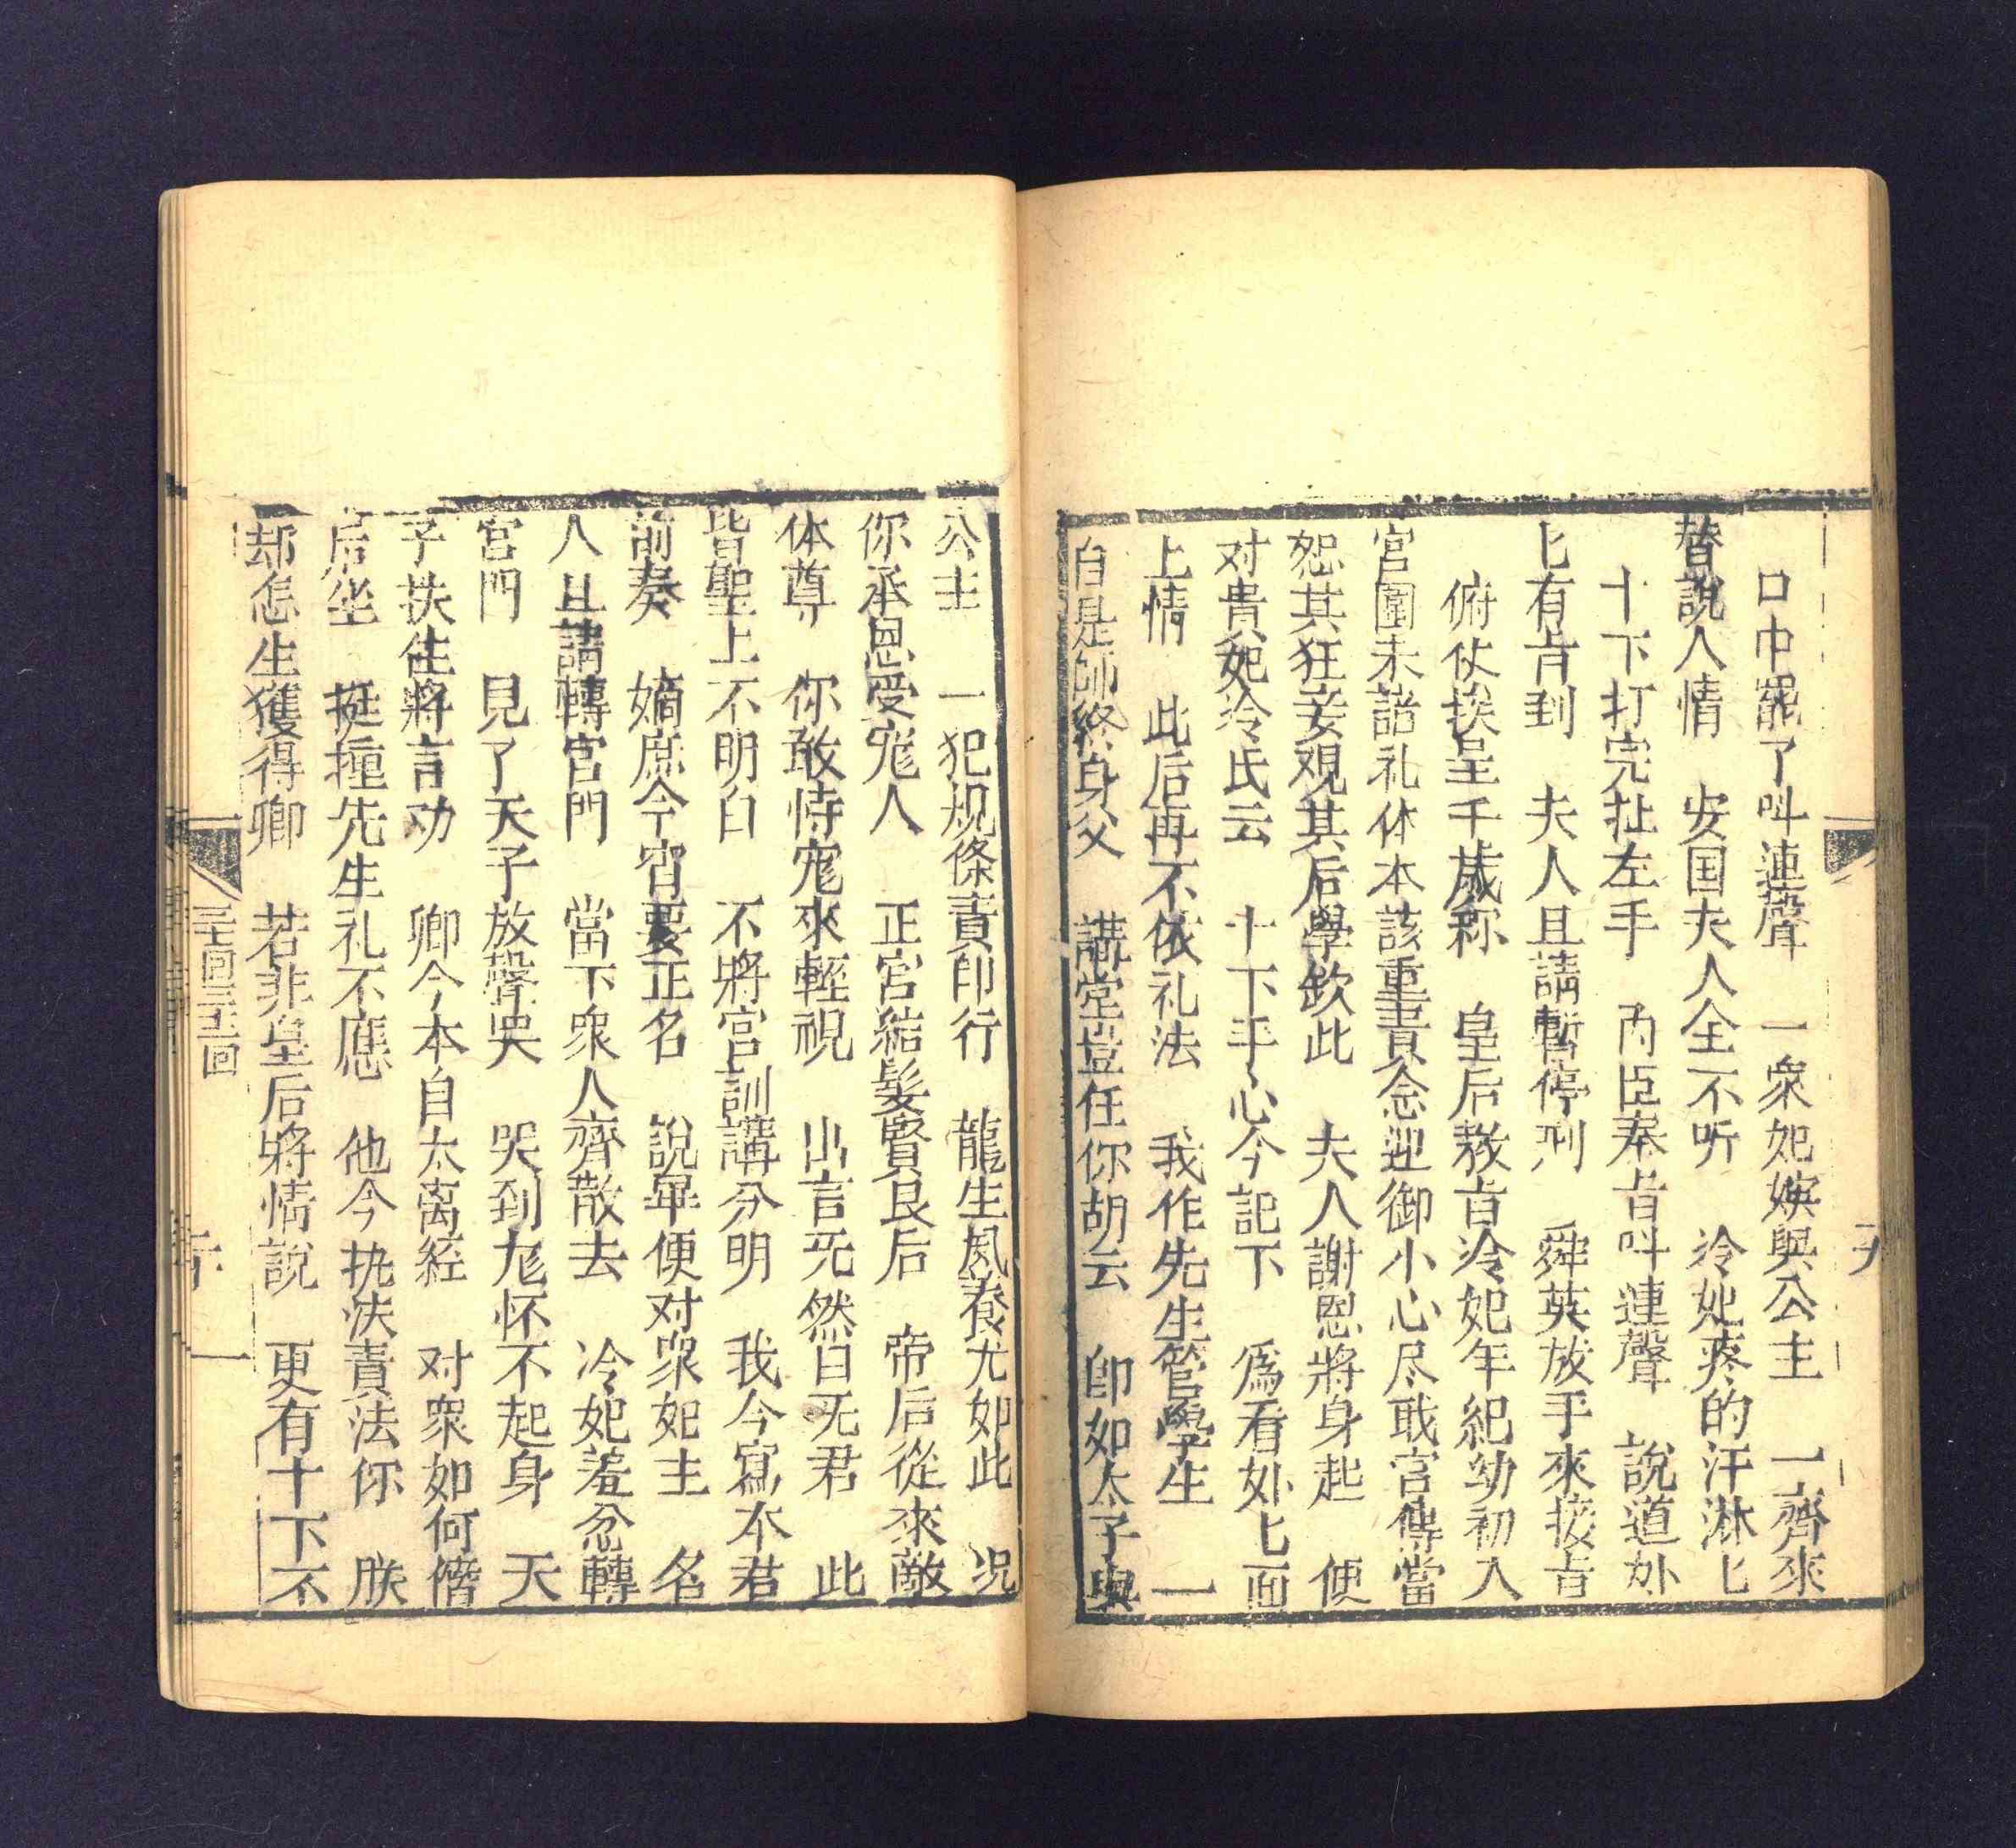 口中罷了呌連聲　一衆妃嬪與公主　一齊來
替說人情　安国夫人全不听　冷妃疼的汗淋匕
十下打完扯左手　內臣奉旨呌連聲　說道外
匕有旨到　夫人且請暫停刑　舜英放手來接旨
俯仗挨呈千歲称　皇后敎旨冷妃年紀幼初入
宮圍未諳礼体本該重責念迎御小心尽戢宮傳當
恕其狂妄观其后學欽此　夫人謝恩將身起　便
对貴妃冷氏云　十下手心今記下　爲看外匕面
上情　此后再不依礼法　我作先生管學生　一
白是師終身父　講堂豈任你胡云　卽如太子與
公主　一犯規條責卽行　龍生凤養尤如此　况
你承恩受寵人　正宮結髮賢良后　帝后從來敵
体尊　你敢恃寵來輕視　出言旡然目旡君　此
皆聖上不明白　不將宮訓講分明　我今寫本君
前奏　嫡庶今宵要正名　說畢便对衆妃主　名
人且請轉宮門　當下衆人齊散去　冷妃羞忿轉
宮門　見了天子放聲哭　哭到尨怀不起身　天
子扶住將言功　卿今本自太离経　对衆如何僭
后坐　挺撞先生礼不應　他今执法責法你　朕
却怎生獲得卿　若非皇后將情說　更有十下不
三十回至三十三回